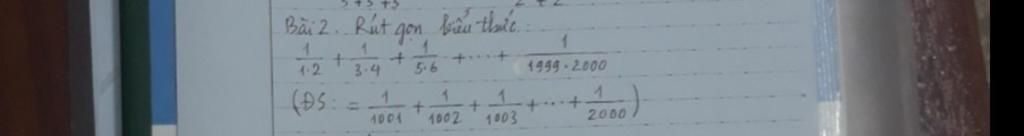 Bài 2. Rút gọn biểu thức:
1/1·2 + 1/3·4 + 1/5·6 + ... + 1/1999·2000
(ĐS: = 1/1001 + 1/1002 + 1/1003 + ... + 1/2000)